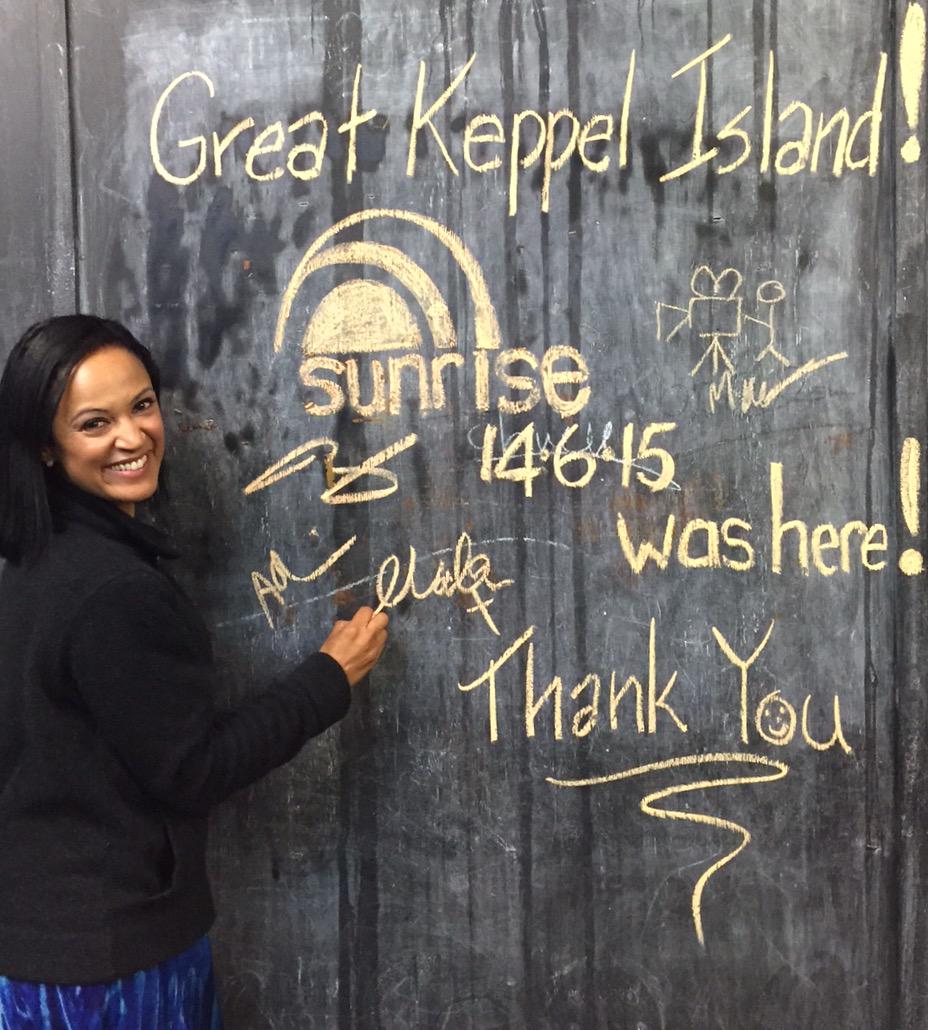 Great Keppel Island!
sunrise
14 6 15
was here!
Thank You